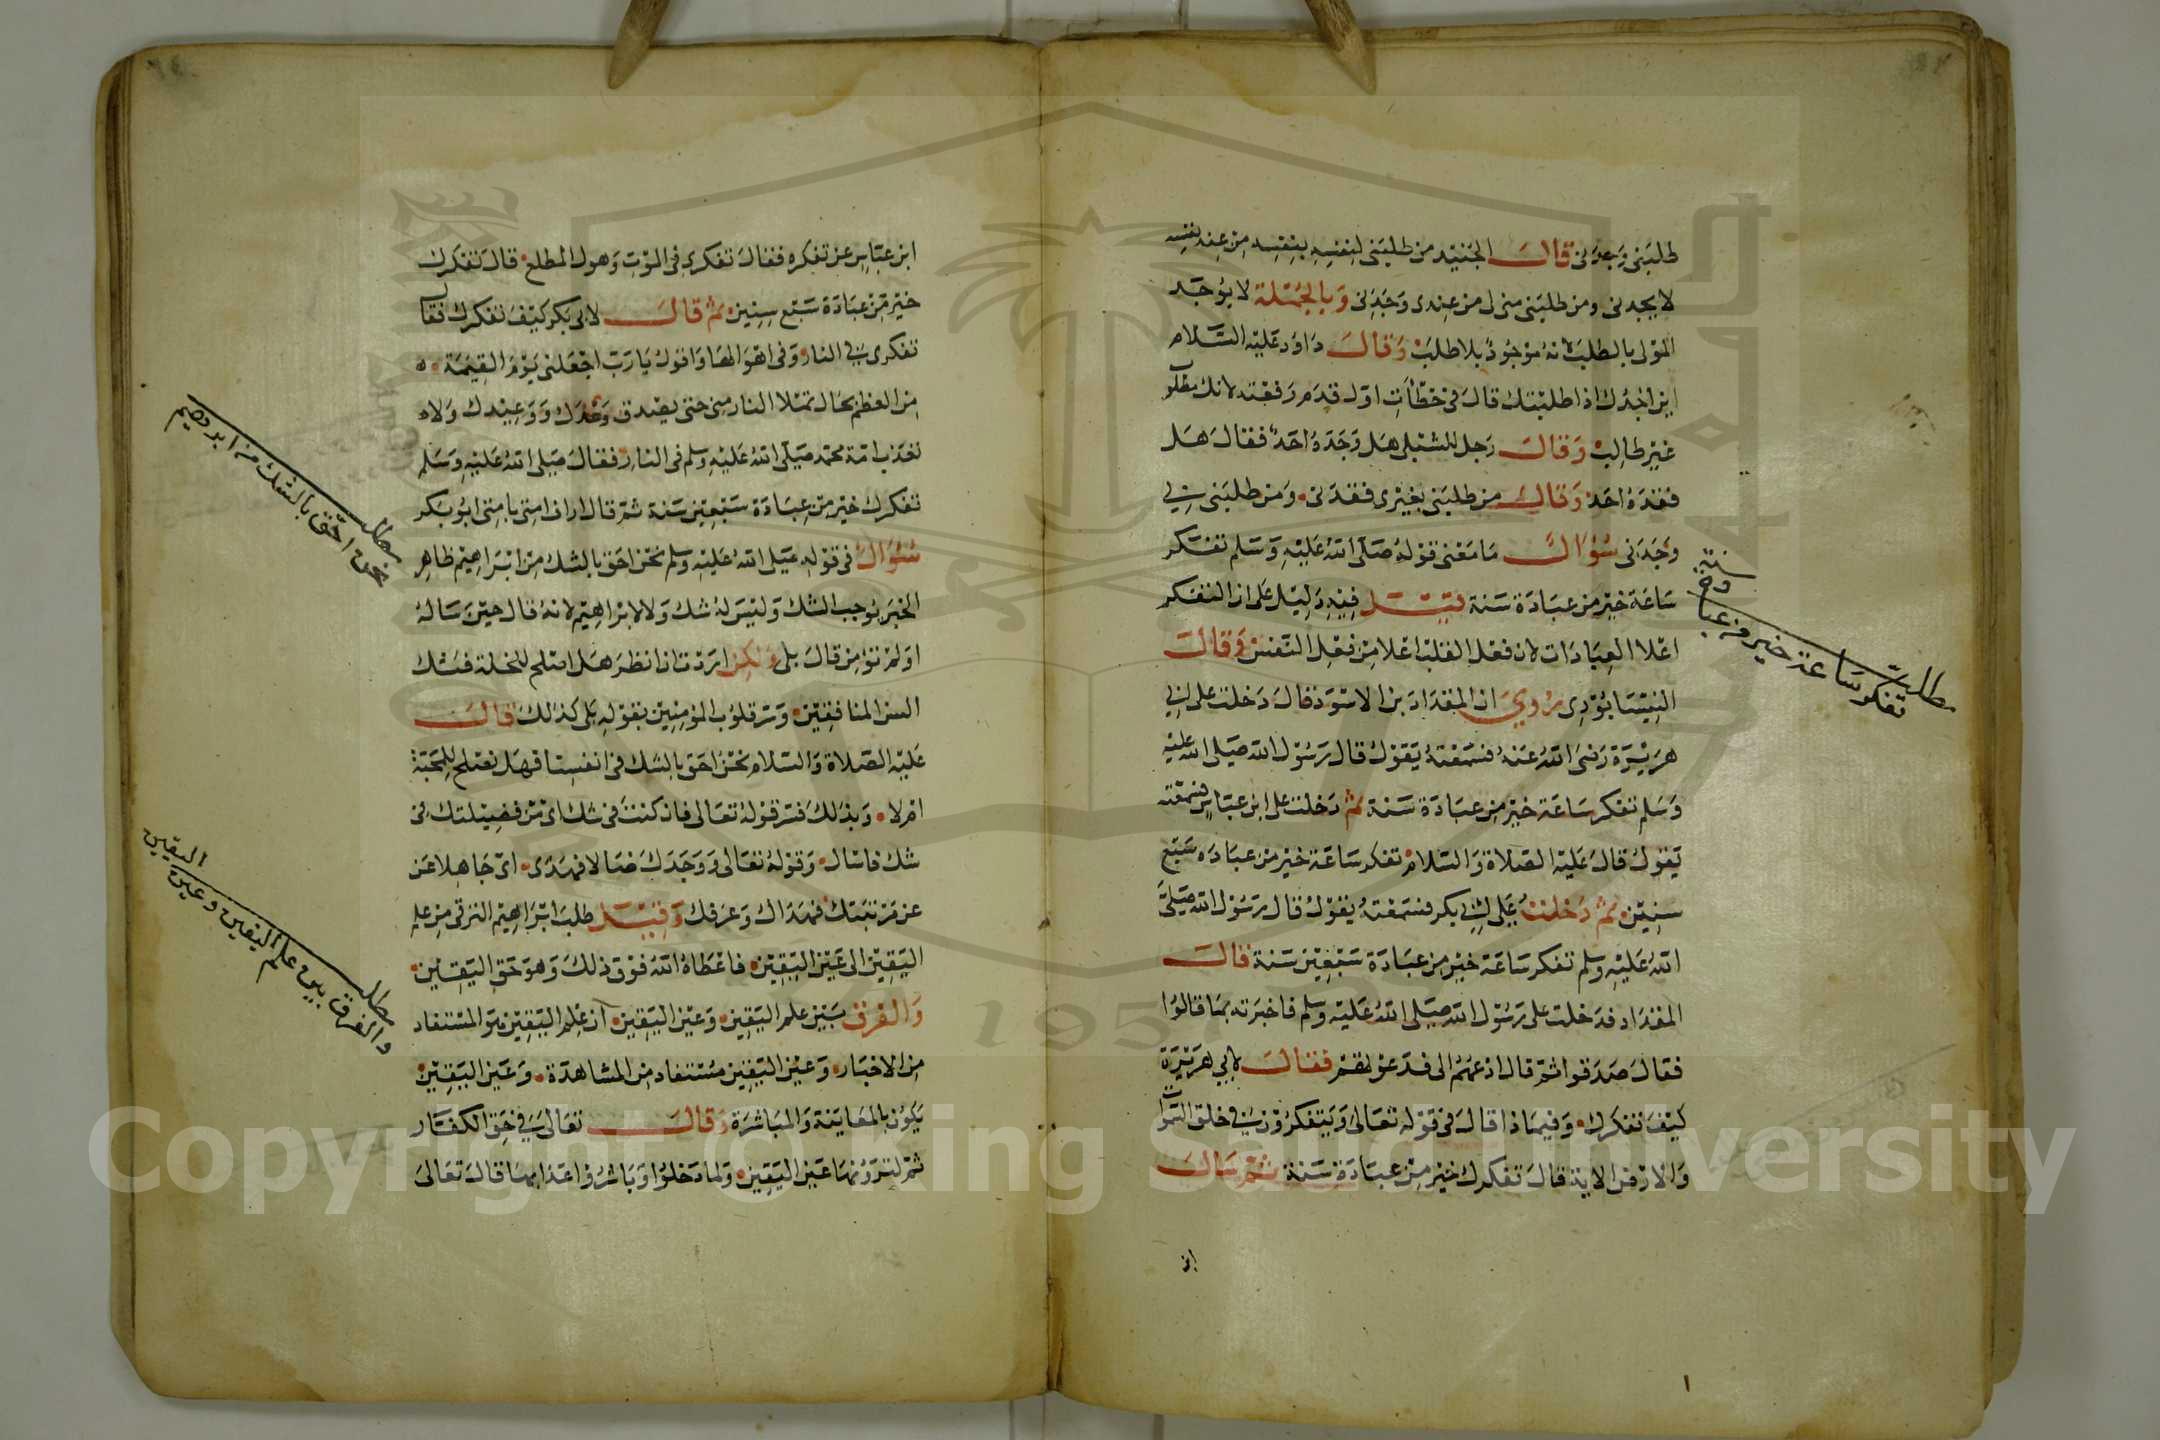 طلبنى وجدنى قال الجنيد من طلبنى لنفسه بنفسه من عند نفسه
لا يجدنى ومن طلبنى منى لى من عندى وجدنى وبالجملة لا يوجد
المولى بالطلب لانه موجود بلا طلب وقال داود عليه السلام
اين اجدك اذا طلبتك قال فى خطأت اول قدم رفعته لانك مطلو
غير طالب وقال رجل للشبلى هل وجده احد فقال هل
فقده احد وقال من طلبنى بغيرى فقدنى ومن طلبنى بى
وجدنى سؤال ما معنى قوله صلى الله عليه وسلم تفكر
ساعة خير من عبادة سنة قيل فيه دليل على ان التفكر
اعلا العبادات لان فعل القلب اعلا من فعل النفس وقال
النيسابورى روي ان المقداد بن الاسود قال دخلت على ابى
هريرة رضى الله عنه فسمعته يقول قال رسول الله صلى الله عليه
وسلم تفكر ساعة خير من عبادة سنة ثم دخلت على ابن عباس فسمعته
يقول قال عليه الصلاة والسلام تفكر ساعة خير من عباده سبع
سنين ثم دخلت على ابى بكر فسمعته يقول قال رسول الله صلى
الله عليه وسلم تفكر ساعة خير من عبادة سبعين سنة قال
المقداد فدخلت على رسول الله صلى الله عليه وسلم فاخبرته بما قالوا
فقال صدقوا ثم قال ادعهم الى فدعوتهم فقال لابي هريرة
كيف تفكرك وفيماذا قال فى قوله تعالى ويتفكرون فى خلق السموات
والارض الاية قال تفكرك خير من عبادة سنة ثم سال
ابن
مطلب
تفكر ساعة خير من عبادة
سنة
ابن عباس عن تفكره فقال تفكرى فى الموت وهول المطلع قال تفكرك
خير من عبادة سبع سنين ثم قال لابى بكر كيف تفكرك فقال
تفكرى فى النار وفى اهوالها واقول يا رب اجعلنى يوم القيمة
من العظم بحال تملا النار منى حتى يصدق وعدك ووعيدك ولا
تعذب امة محمد صلى الله عليه وسلم فى النار فقال صلى الله عليه وسلم
تفكرك خير من عبادة سبعين سنة ثم قال اراف امتى بامتى ابو بكر
سؤال فى قوله صلى الله عليه وسلم نحن احق بالشك من ابراهيم ظاهر
الخبر يوجب الشك وليس له شك ولا لابراهيم لانه قال حين ساله
اولم تؤمن قال بلى ولكن اردت ان انظر هل اصلح للخلة فشك
السن المنافقين وسر قلوب المؤمنين بقوله بلى كذلك قال
عليه الصلاة والسلام نحن احق بالشك فى انفسنا فهل نصلح للمحبة
ام لا وبذلك فسر قوله تعالى فان كنت فى شك اى من فضيلتك فى
شك فاسال وقوله تعالى ووجدك ضالا فهدى اى جاهلا عن
عن مرتبتك فهداك وعرفك وقيل طلب ابراهيم الترقى من علم
اليقين الى عين اليقين فاعطاه الله فوق ذلك وهو حق اليقين
والفرق بين علم اليقين وعين اليقين ان علم اليقين هو المستفاد
من الاخبار وعين اليقين مستفاد من المشاهدة وعين اليقين
يكون بالمعاينة والمباشرة وقال تعالى فى حق الكفار
ثم لترونها عين اليقين ولما دخلوا وباشروا عذابها قال تعالى
مطلب
نحن احق بالشك من ابرهيم
مطلب
والفرق بين علم اليقين وعين
اليقين